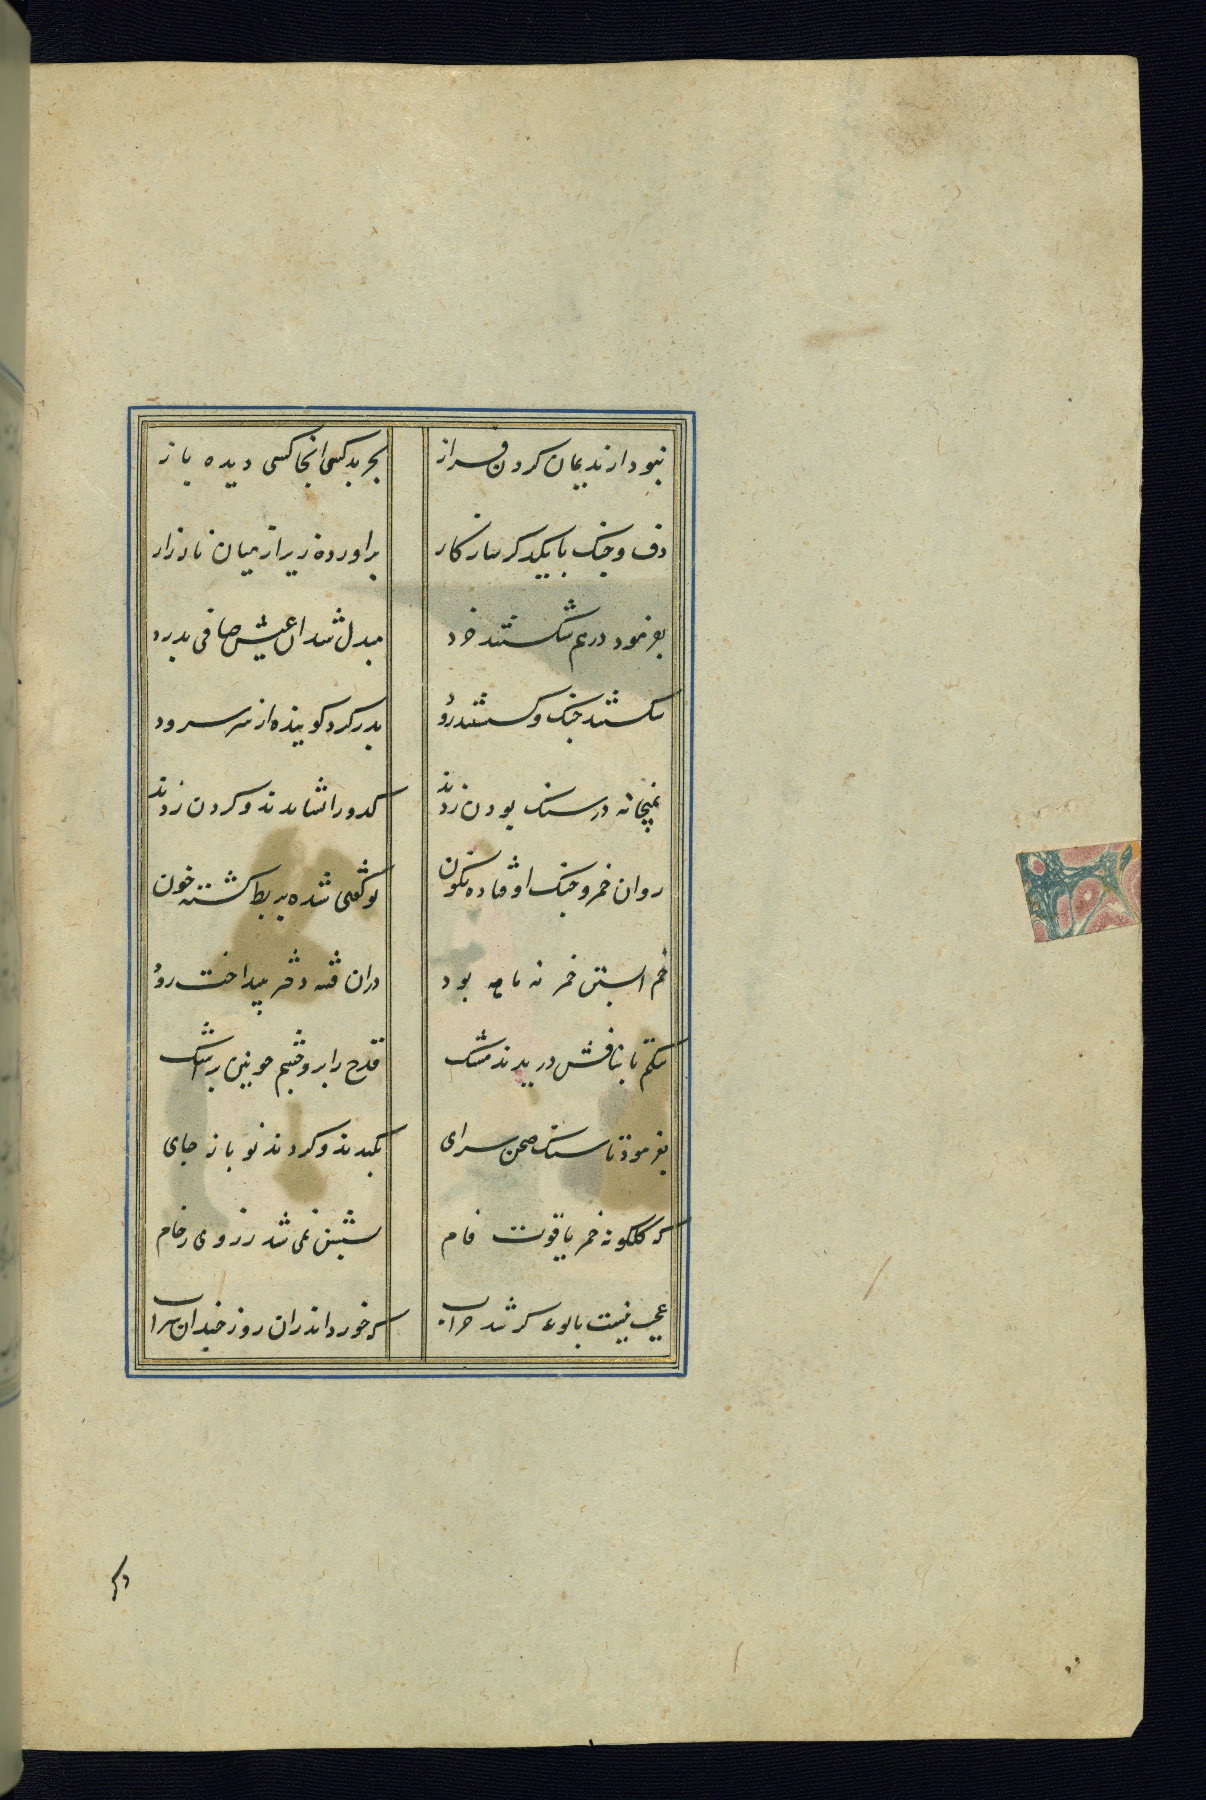 نبود از ندیمان کردن فراز بجز بدکسی انجا کسی دیده باز
دف و چنک با یکدکر سازکار براورده زیر از میان نار زار
بفرمود درهم شکستند خرد مبدل شد ان عیش صافی بدرد
شکستند چنک و کسستند رود بدر کرد کوینده از سر سرود
بمیخانه در سنک بر دن زدند کدو را نشاندند و کردن زدند
روان خمر و چنک اوفتاده نکون تو کفتی شده بر بط کشته خون
خم ابستن خمر نه ماهه بود دران فتنه دختر بینداخت زود
شکم تا بنافش دریدند مشک قدح را برو چشم خونین بر اشک
بفرمود تا سنک صحن سرای بکندند و کردند نو باز جای
که کلکونه خمر یاقوت فام بشستن نمی شد ز روی رخام
عجب نیست بالوعه کر شد خراب که خورد اندران روز چندان شراب
دکر